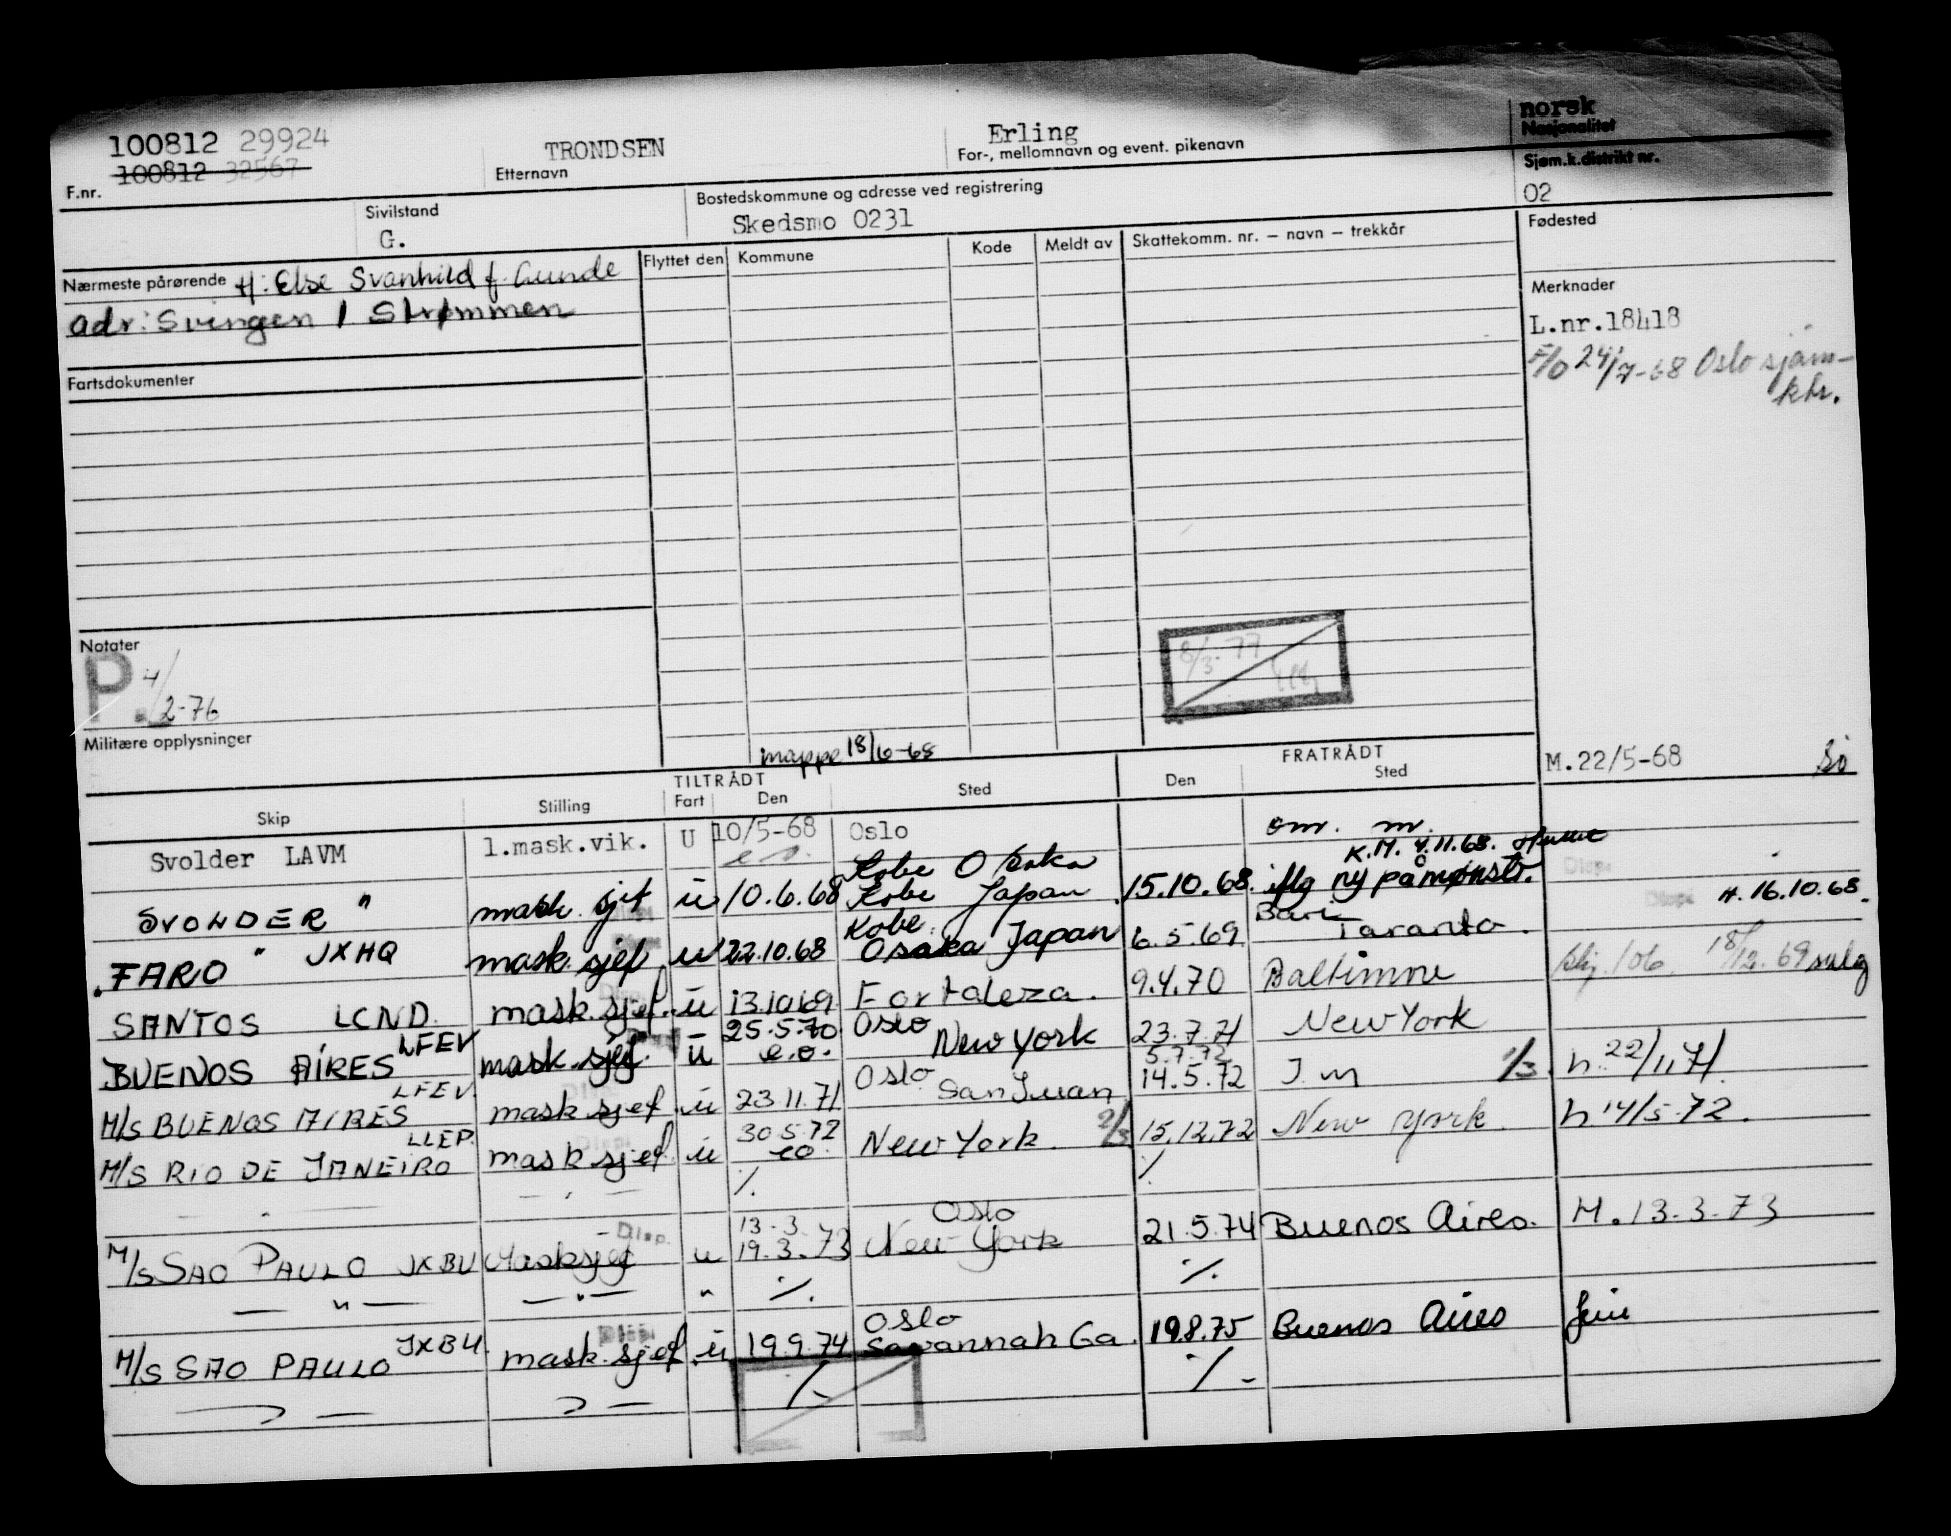 100812 29924
100812 32567
F.nr.
TRONDSEN
Etternavn
Erling
For-, mellomnavn og event. pikenavn
norsk
Nasjonalitet
Sivilstand
G.
Bostedskommune og adresse ved registrering
Skedsmo 0231
Sjøm.k.distrikt nr.
02
Nærmeste pårørende H: Else Svanhild f. Lunde
adr: Svingen 1 Strømmen
Flyttet den
Kommune
Kode
Meldt av
Skattekomm. nr. – navn – trekkår
Fødested
Merknader
L.nr.18418
F/O 24/7-68 Oslo sjøm-
ktr.
Fartsdokumenter
Notater
P. 4/2-76
8/3-77
Militære opplysninger
mappe 18/6-68
M.22/5-68
TILTRÅDT
FRATRÅDT
Skip
Stilling
Fart
Den
Sted
Den
Sted
Svolder LAVM l.mask.vik. U 10/5-68 Oslo
e.o.
om. m.
K.M. 4.11.68.
Kobe Osaka
SVOLDER " mask. sjef u 10.6.68 Kobe Japan 15.10.68. iflg ny påmønstr.
H. 16.10.68.
Kobe.
Bari
FARO " JXHQ mask. sjef u 22.10.68 Osaka Japan 6.5.69 Taranto.
SANTOS LCND mask. sjef. u 13.10.69 Fortaleza. 9.4.70 Baltimore 18/12.69
25.5.70 Oslo
BUENOS AIRES LFEV mask. sjef. u e.o. New York 23.7.71 New York
5.7.72
M/S BUENOS AIRES LFEV. mask sjef. u 23.11.71 Oslo San Juan 14.5.72 1/3 h 22/11.71
30.5.72
M/S RIO DE JANEIRO LLEP. mask sjef. u eo. New York. 2/3 15.12.72 New York. h 14/5.72.
— " — — " — ⁒ ⁒
Disp.
13.3. Oslo
M/S SAO PAULO JXBU Masksjef u 19.3.73 New York 21.5.74 Buenos Aires. M.13.3.73
— " — — " — " ⁒ ⁒
Oslo
M/S SAO PAULO JXBU. mask. sjef. u 19.9.74 Savannah Ga. 19.8.75 Buenos Aires
— " — — " — ⁒ ⁒